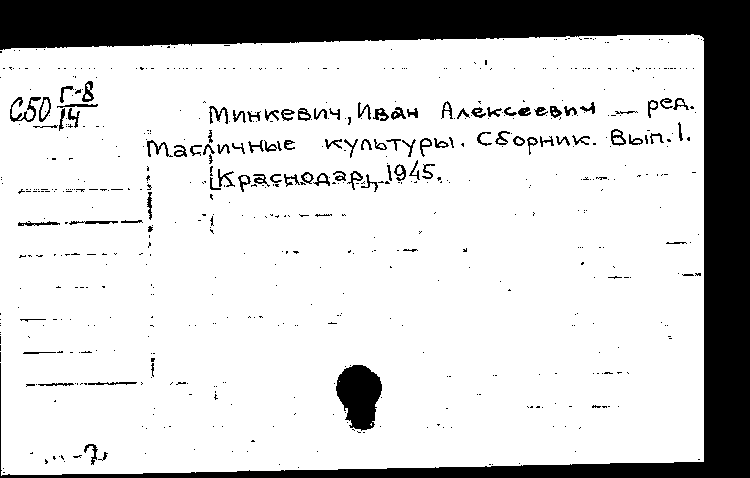 С50 Г-8/14
Минкевич, Иван Алексеевич — ред.
Масличные культуры. Сборник. Вып. 1.
[Краснодар], 1945.